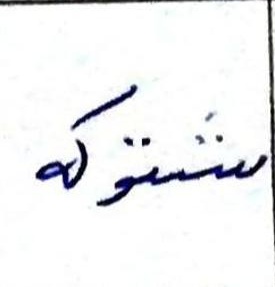 شتوکه